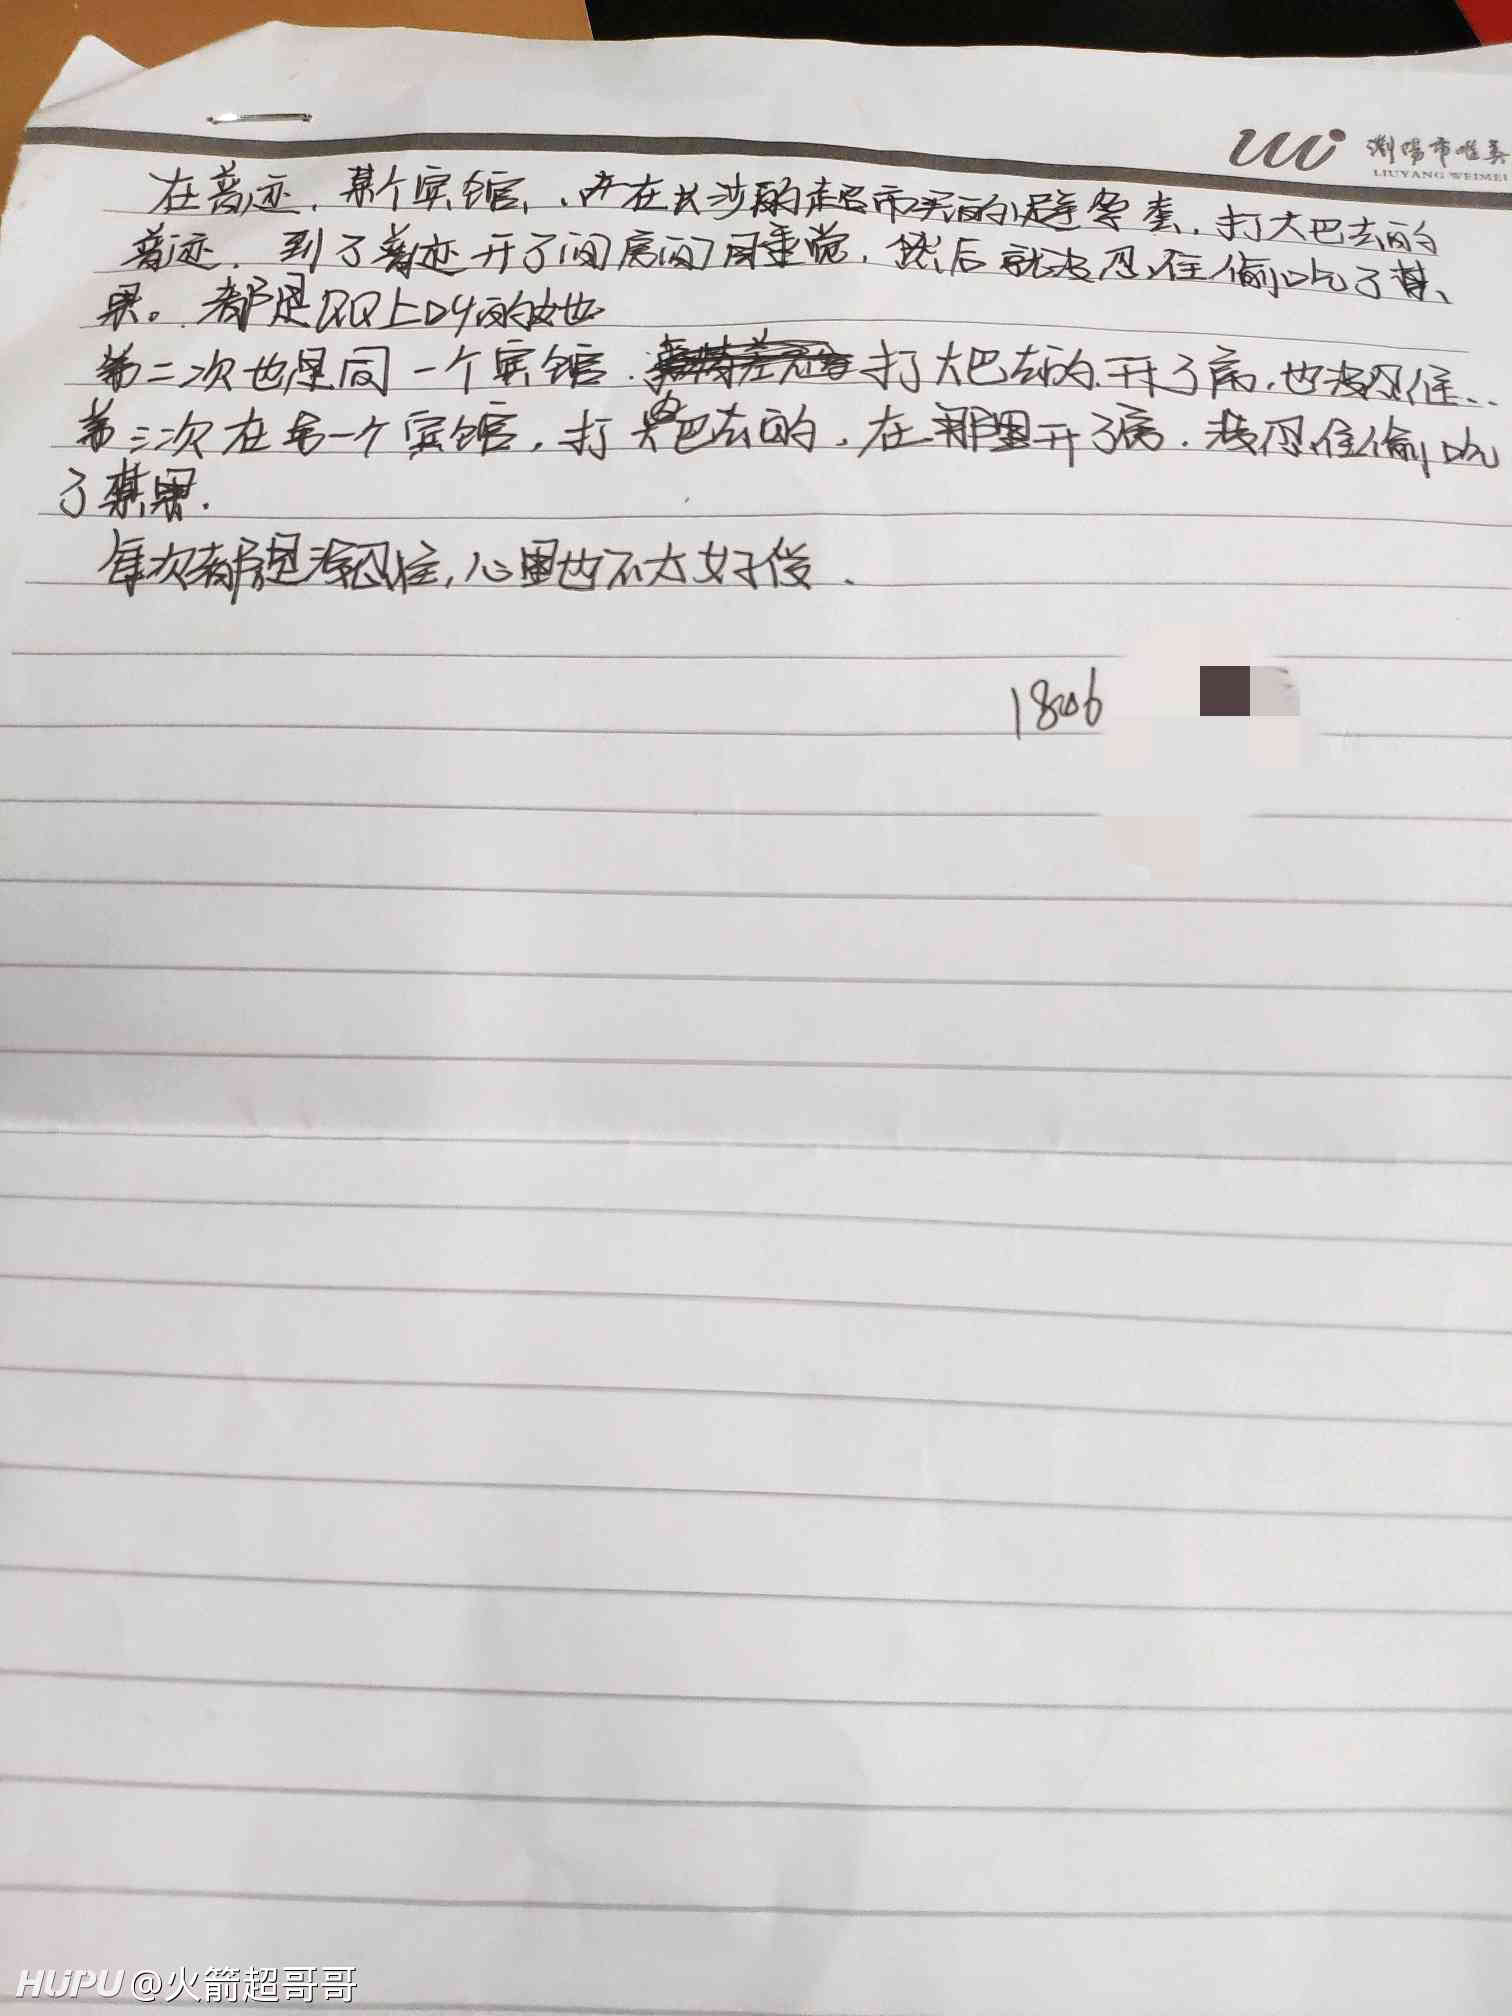 浏阳市唯美
LIUYANG WEIMEI
在普迹，某个宾馆，在长沙的超市买的避孕套，打大巴去的
普迹，到了普迹开了间房间睡觉，然后就没忍住偷吃了禁
果。都是QQ上的她
第二次也是同一个宾馆．打大巴去的．开了房，也没忍住...
第三次在另一个宾馆，打大巴去的，在那里开了房．没忍住偷吃
了禁果．
每次都是没忍住，心里也不太好受．
1806
HUPU @火箭超哥哥